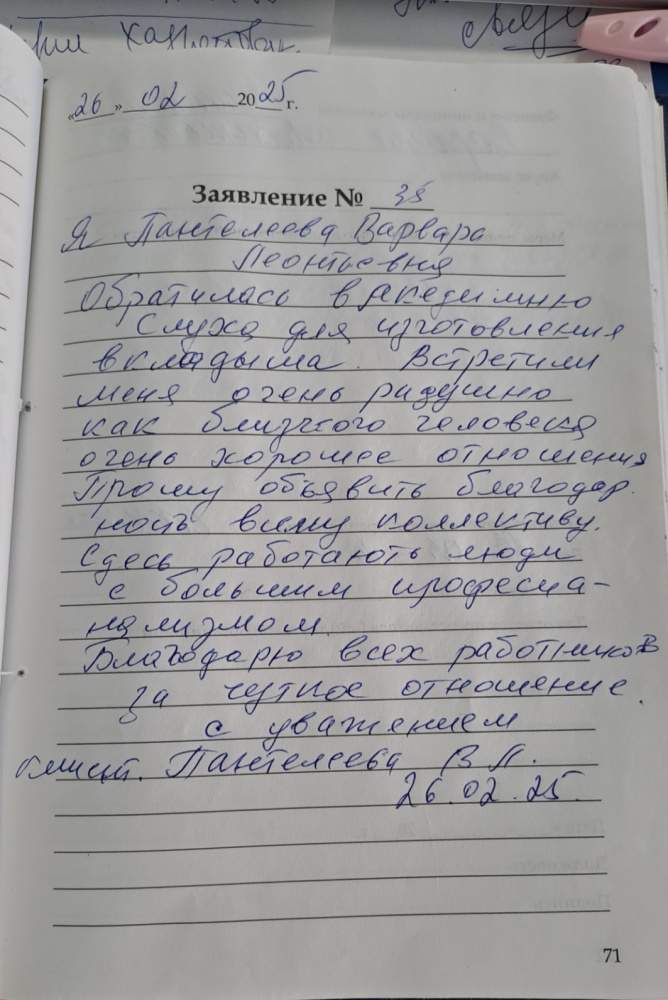 «26» 02 2025 г.
Заявление № 38
Я Пантелеева Варвара
Леонтьевня
Обратилась в Акедимию
Слуха для изготовления
вкладыша. Встретили
меня очень радушно
как близкого человека
очень хорошее отношения
Прошу объявить благодар
ность всему коллективу.
Сдесь работають люди
с большим професиа-
нализмом.
Благодарю всех работников
За чуткое отношение.
с уважением
Клиент. Пантелеева В Л.
26.02.25.
71